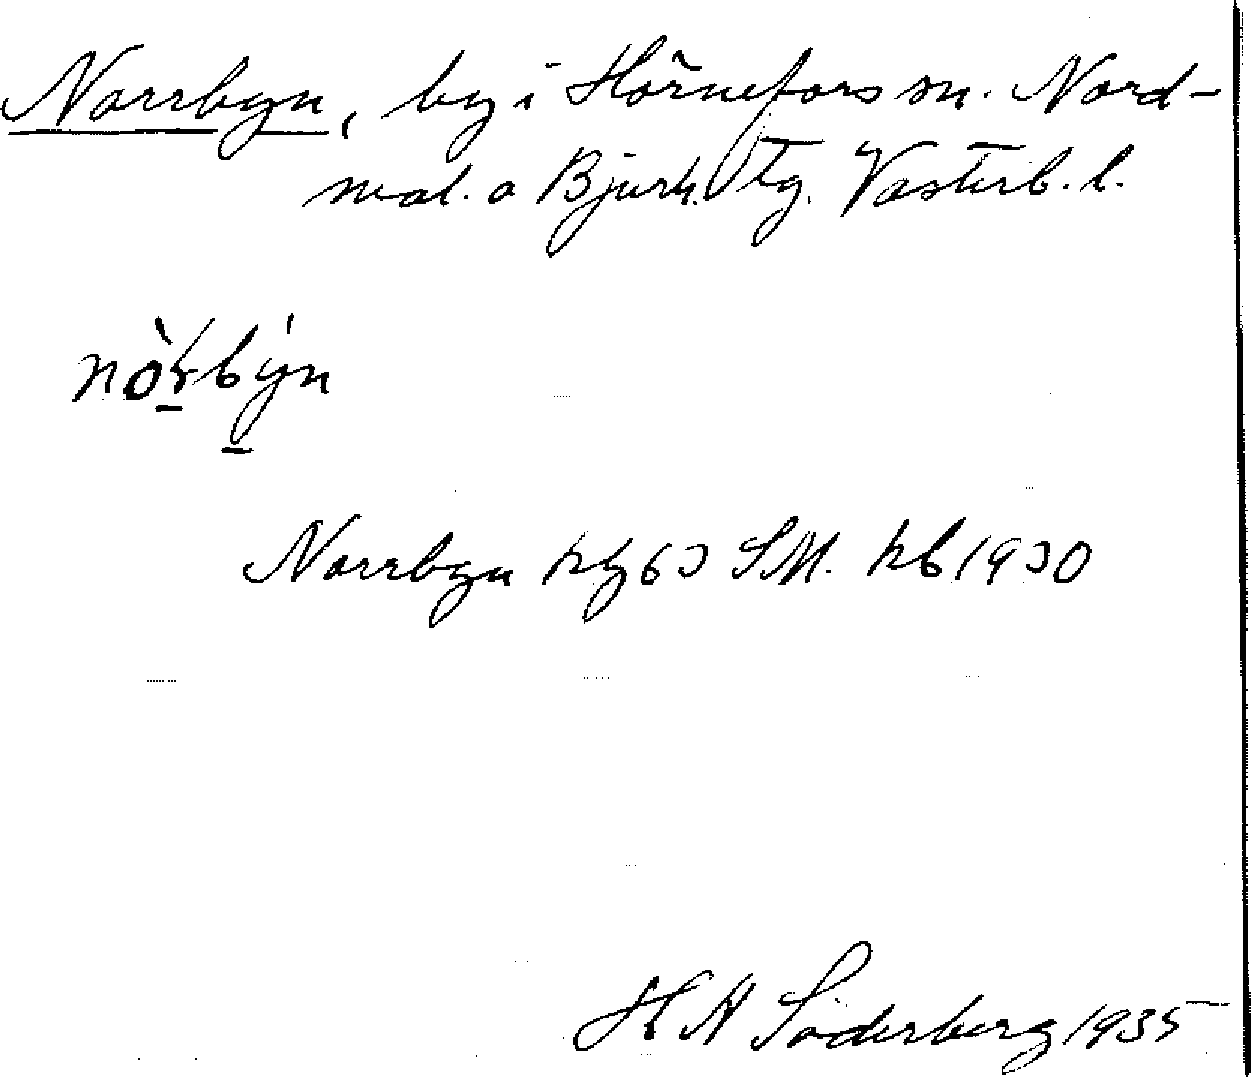 Norrbyn, by i Hörnefors sn. Nord-
mal. o Bjurh. tg. Västerb. l.
Norrbyn kg 63 SM. kb 1930
H A Söderberg 1935